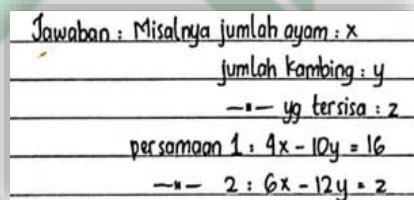 Jawaban : Misalnya jumlah ayam : x
jumlah kambing : y
—"— yg tersisa : z
persamaan 1 : 4x - 10y = 16
—"— 2 : 6x - 12y = z